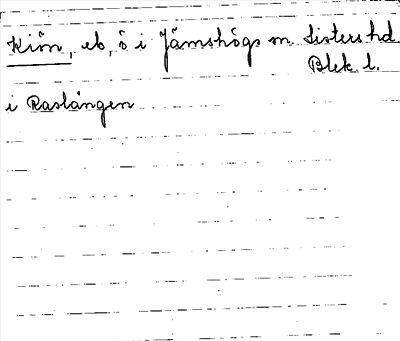 Kiön, eb, ö i Jämshögs sn Listers hd
Blek l.
i Raslången